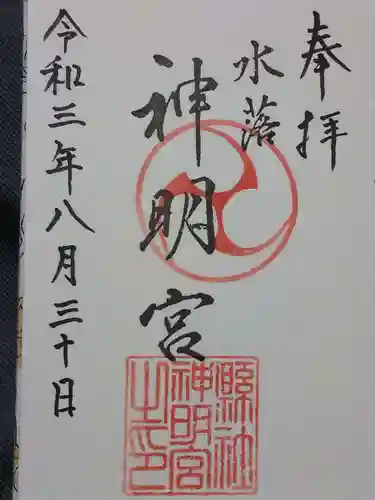 奉拝
水落
神明宮
令和三年八月三十日
縣社
神明宮
之印